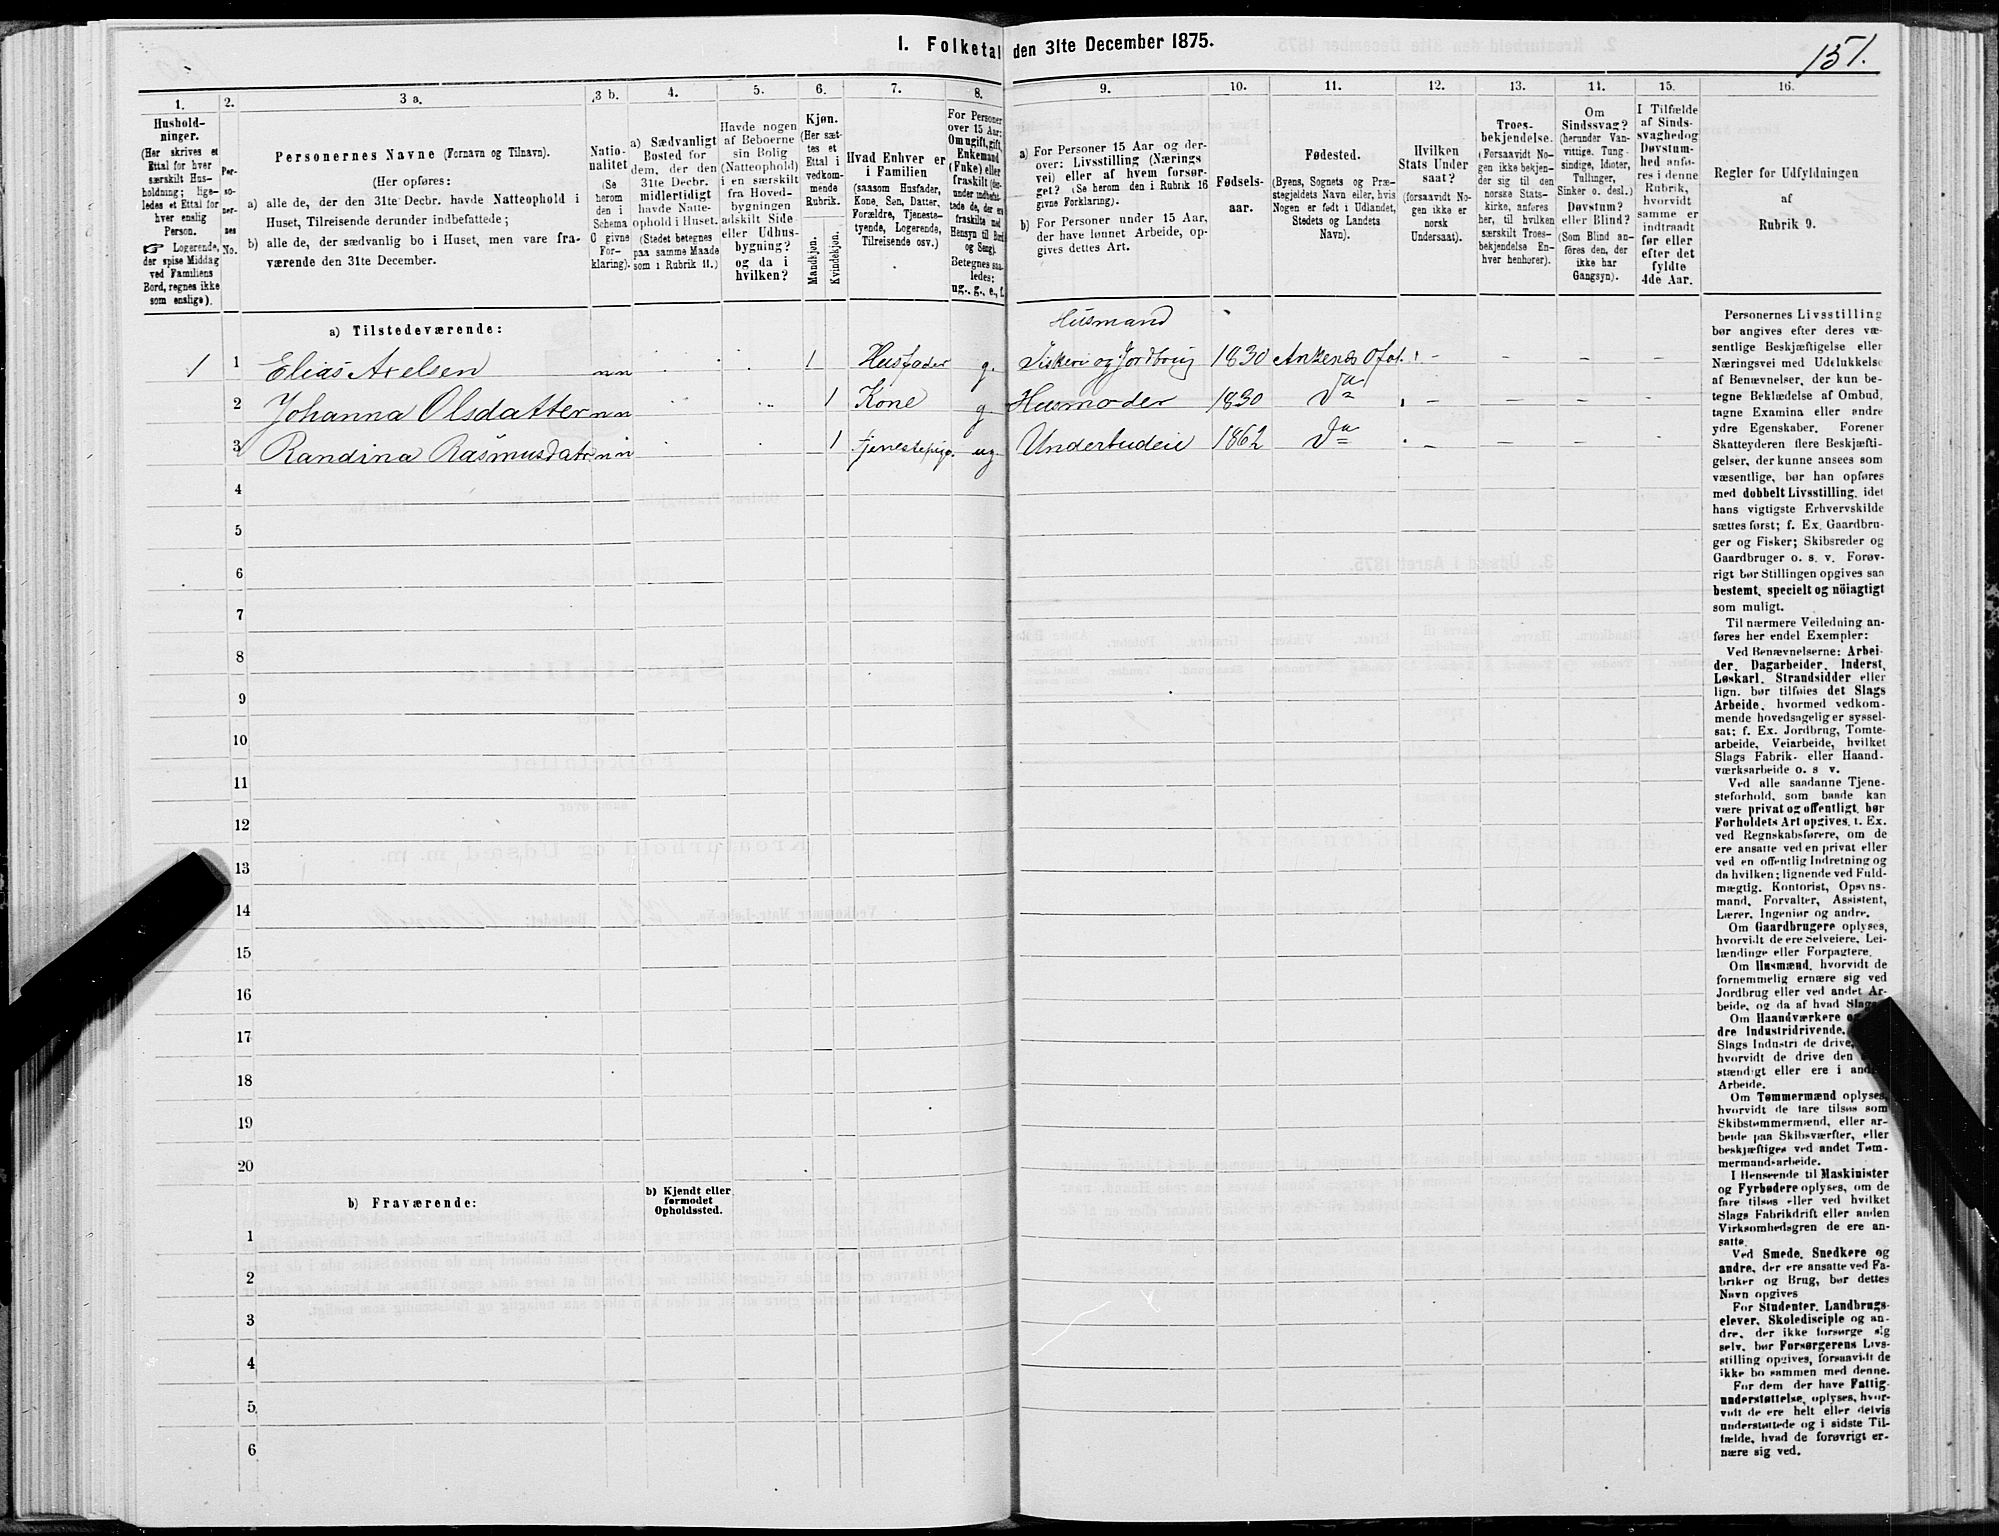 I. Folketal den 31te December 1875.
151.
1.
Hushold-
ninger.
(Her skrives et
Ettal for hver
særskilt Hus-
holdning; lige-
ledes et Ettal for
hver enslig
Person.
Logerende,
der spise Middag
ved Familiens
Bord, regnes ikke
som enslige).
2.
Per-
so-
ner-
nes
No.
3 a.
Personernes Navne (Fornavn og Tilnavn).
(Her opføres:
a) alle de, der den 31te Decbr. havde Natteophold i
Huset, Tilreisende derunder indbefattede;
b) alle de, der sædvanlig bo i Huset, men vare fra-
værende den 31te December.
3 b.
Natio-
nalitet
(Se
herom
den i
Schema
C givne
For-
klaring).
4.
a) Sædvanligt
Bosted for
dem, der den
31te Decbr.
midlertidigt
havde Natte-
ophold i Huset.
(Stedet betegnes
paa samme Maade
som i Rubrik 11.)
5.
Havde nogen
af Beboerne
sin Bolig
(Natteophold)
i en særskilt
fra Hoved-
bygningen
adskilt Side-
eller Udhus-
bygning?
og da i
hvilken?
6.
Kjøn.
(Her sæt-
tes et
Ettal i
vedkom-
mende
Rubrik.
Mandkjøn.
Kvindekjøn.
7.
Hvad Enhver er
i Familien
(saasom Husfader,
Kone, Søn, Datter,
Forældre, Tjeneste-
tyende, Logerende,
Tilreisende osv.)
8.
For Personer
over 15 Aar:
Om ugift, gift,
Enkemand
(Enke) eller
fraskilt (der-
under indbefat-
tede de, der ere
fraskilte med
Hensyn til Bord
og Seng).
Betegnes saa-
ledes:
ug., g., e., f.
9.
a) For Personer 15 Aar og der-
over: Livsstilling (Nærings
vei) eller af hvem forsør-
get? (Se herom den i Rubrik 16
givne Forklaring).
b) For Personer under 15 Aar,
der have lønnet Arbeide, op-
gives dettes Art.
10.
Fødsels-
aar.
11.
Fødested.
(Byens, Sognets og Præ-
stegjeldets Navn eller, hvis
Nogen er født i Udlandet,
Stedets og Landets
Navn).
12.
Hvilken
Stats Under
saat?
(forsaavidt No-
gen ikke er
norsk
Undersaat).
13.
Troes-
bekjendelse.
(Forsaavidt No-
gen ikke bekjen-
der sig til den
norske Stats-
kirke, anføres
her, til hvilken
særskilt Troes-
bekjendelse En-
hver henhører).
14.
Om
Sindssvag?
(herunder Van-
vittige, Tung-
sindige, Idioter,
Tullinger,
Sinker o. desl.)
Døvstum?
eller Blind?
(Som Blind an-
føres den, der
ikke har
Gangsyn).
15.
I Tilfælde
af Sinds-
svaghed og
Døvstum-
hed anfø-
res i denne
Rubrik,
hvorvidt
samme er
indtraadt
før eller
efter det
fyldte
4de Aar.
16.
Regler for Udfyldningen
af
Rubrik 9.
a) Tilstedeværende:
Husmand
1 1 Elias Axelsen nn 1 Husfader g. Fiskeri og Jordbrug 1830 Ankenes Ofot. - - - -
2 Johanna Olsdatter nn 1 Kone g. Husmoder 1830 Da - - - -
3 Randina Rasmusdatr nn 1 Tjenestepige ug. Underbudeie 1862 Da - - - -
4
5
6
7
8
9
10
11
12
13
14
15
16
17
18
19
20
b) Fraværende:
b) Kjendt eller
formodet
Opholdssted.
1
2
3
4
5
6
Personernes Livsstilling
bør angives efter deres væ-
sentlige Beskjæftigelse eller
Næringsvei med Udelukkelse
af Benævnelser, der kun be-
tegne Beklædelse af Ombud,
tagne Examina eller andre
ydre Egenskaber. Forener
Skatteyderen flere Beskjæfti-
gelser, der kunne ansees som
væsentlige, bør han opføres
med dobbelt Livsstilling, idet
hans vigtigste Erhvervskilde
sættes først; f. Ex. Gaardbru-
ger og Fisker; Skibsreder og
Gaardbruger o. s. v. Forøv-
rigt bør Stillingen opgives saa
bestemt, specielt og nöiagtigt
som muligt.
Til nærmere Veiledning an-
føres her endel Exempler:
Ved Benævnelserne: Arbei-
der, Dagarbeider, Inderst,
Løskarl, Strandsidder eller
lign. bør tilføies det Slags
Arbeide, hvormed vedkom-
mende hovedsagelig er syssel-
sat; f. Ex. Jordbrug, Tomte-
arbeide, Veiarbeide, hvilket
Slags Fabrik- eller Haand-
værksarbeide o. s. v.
Ved alle saadanne Tjene-
steforhold, som baade kan
være privat og offentligt, bør
Forholdets Art opgives, t. Ex.
ved Regnskabsførere, om de
ere ansatte ved en privat eller
ved en offentlig Indretning og
da hvilken; lignende ved Fuld-
mægtig, Kontorist, Opsyns-
mand, Forvalter, Assistent,
Lærer, Ingeniør og andre.
Om Gaardbrugere oplyses,
hvorvidt de ere Selveiere, Lei-
lændinge eller Forpagtere.
Om Husmænd, hvorvidt de
fornemmelig ernære sig ved
Jordbrug eller ved andet Ar-
beide, og da af hvad Slags.
Om Haandværkere og
dre Industridrivende,
Slags Industri de drive,
hvorvidt de drive den
stændigt eller ere i
Arbeide.
Om Tømmermænd oplyses,
hvorvidt de fare tilsøs som
Skibstømmermænd, eller ar-
beide paa Skibsværfter, eller
beskjæftiges ved andet Tøm-
mermandsarbeide.
I Henseende til Maskinister
og Fyrbødere oplyses, om de
fare tilsøs eller ved hvilket
Slags Fabrikdrift eller anden
Virksomhedsgren de ere an-
satte.
Ved Smede, Snedkere og
andre, der ere ansatte ved Fa-
briker og Brug, bør dettes
Navn opgives
For Studenter, Landbrugs-
elever, Skoledisciple og an-
dre, der ikke forsørge sig
selv, bør Forsørgerens Livs-
stilling opgives, forsaavidt de
ikke bo sammen med denne.
For dem der have Fattig-
understøttelse, oplyses, hvor-
vidt de ere helt eller delvis
understøttede og i sidste Til-
fælde, hvad de forøvrigt er-
nære sig ved.